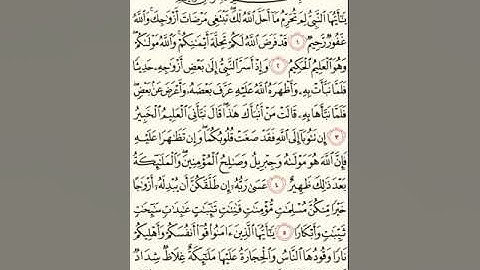 يَٰٓأَيُّهَا ٱلنَّبِىُّ لِمَ تُحَرِّمُ مَآ أَحَلَّ ٱللَّهُ لَكَ ۖ تَبْتَغِى مَرْضَاتَ أَزْوَٰجِكَ ۚ وَٱللَّهُ
غَفُورٌ رَّحِيمٌ ١ قَدْ فَرَضَ ٱللَّهُ لَكُمْ تَحِلَّةَ أَيْمَٰنِكُمْ ۚ وَٱللَّهُ مَوْلَىٰكُمْ ۖ
وَهُوَ ٱلْعَلِيمُ ٱلْحَكِيمُ ٢ وَإِذْ أَسَرَّ ٱلنَّبِىُّ إِلَىٰ بَعْضِ أَزْوَٰجِهِۦ حَدِيثًا
فَلَمَّا نَبَّأَتْ بِهِۦ وَأَظْهَرَهُ ٱللَّهُ عَلَيْهِ عَرَّفَ بَعْضَهُۥ وَأَعْرَضَ عَنۢ بَعْضٍ ۖ
فَلَمَّا نَبَّأَهَا بِهِۦ قَالَتْ مَنْ أَنۢبَأَكَ هَٰذَا ۖ قَالَ نَبَّأَنِىَ ٱلْعَلِيمُ ٱلْخَبِيرُ
٣ إِن تَتُوبَآ إِلَى ٱللَّهِ فَقَدْ صَغَتْ قُلُوبُكُمَا ۖ وَإِن تَظَٰهَرَا عَلَيْهِ
فَإِنَّ ٱللَّهَ هُوَ مَوْلَىٰهُ وَجِبْرِيلُ وَصَٰلِحُ ٱلْمُؤْمِنِينَ ۖ وَٱلْمَلَٰٓئِكَةُ
بَعْدَ ذَٰلِكَ ظَهِيرٌ ٤ عَسَىٰ رَبُّهُۥٓ إِن طَلَّقَكُنَّ أَن يُبْدِلَهُۥٓ أَزْوَٰجًا
خَيْرًا مِّنكُنَّ مُسْلِمَٰتٍ مُّؤْمِنَٰتٍ قَٰنِتَٰتٍ تَٰٓئِبَٰتٍ عَٰبِدَٰتٍ سَٰٓئِحَٰتٍ
ثَيِّبَٰتٍ وَأَبْكَارًا ٥ يَٰٓأَيُّهَا ٱلَّذِينَ ءَامَنُوا۟ قُوٓا۟ أَنفُسَكُمْ وَأَهْلِيكُمْ
نَارًا وَقُودُهَا ٱلنَّاسُ وَٱلْحِجَارَةُ عَلَيْهَا مَلَٰٓئِكَةٌ غِلَاظٌ شِدَادٌ